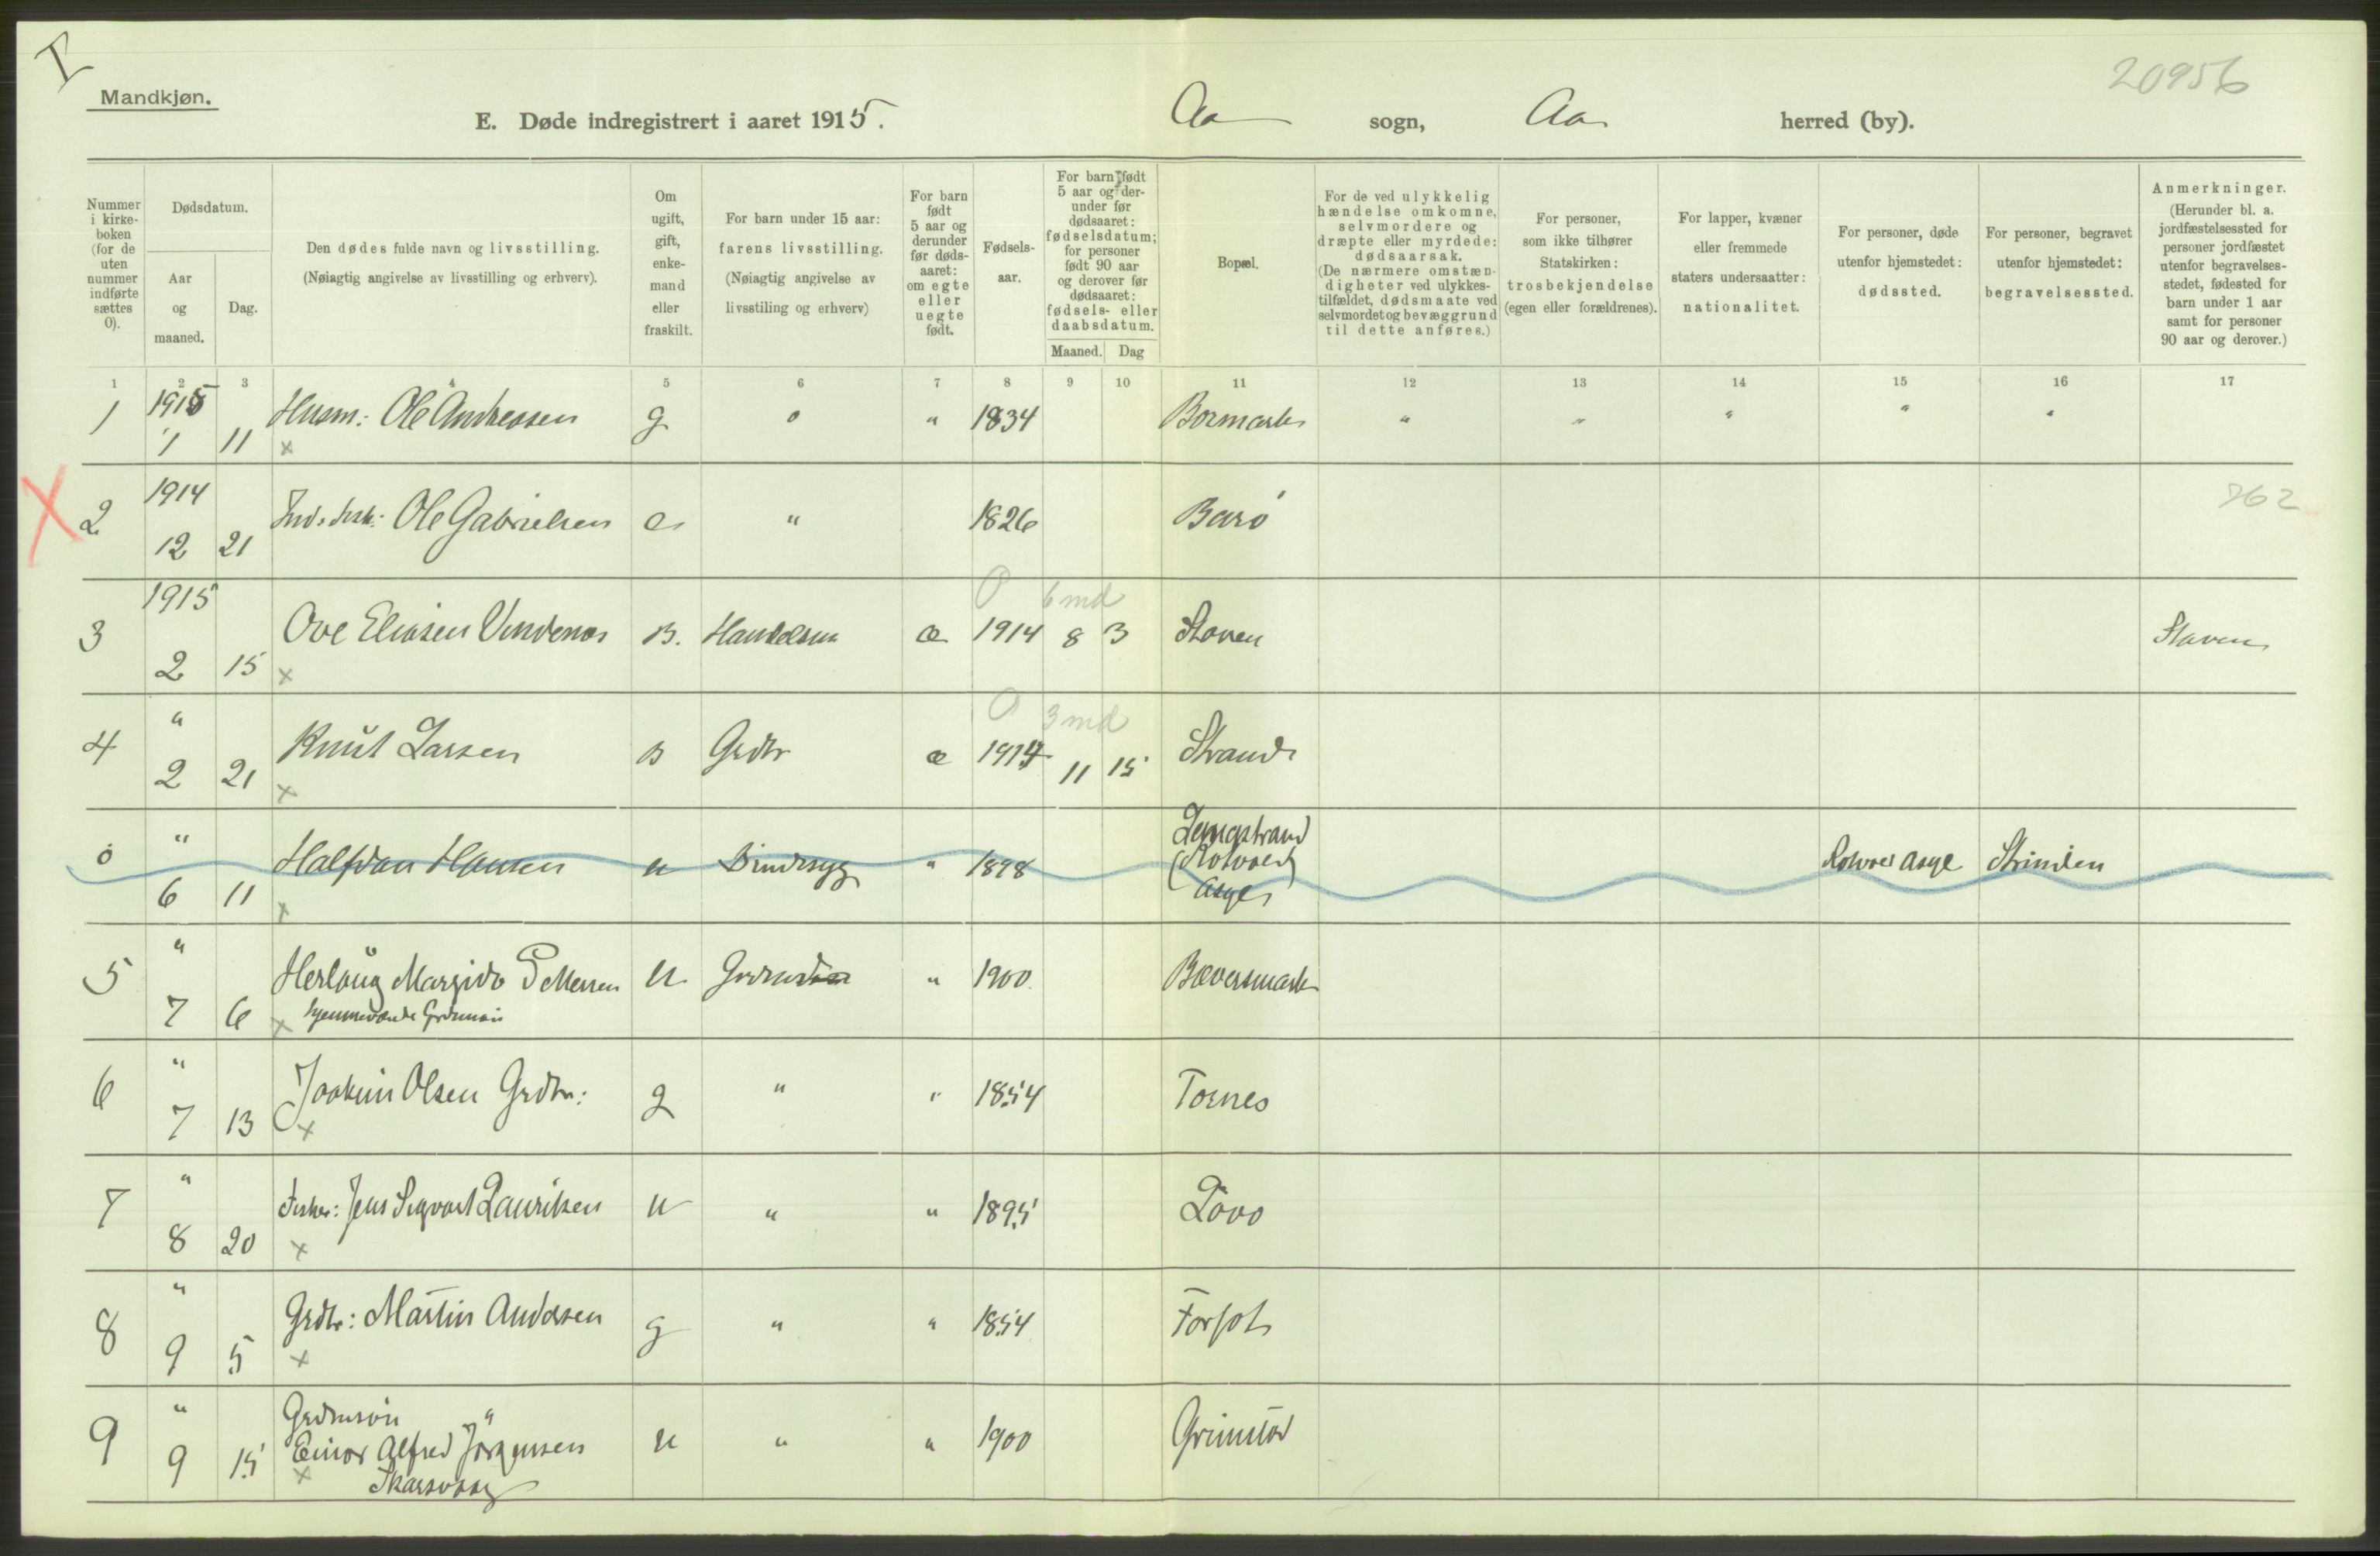 I
20956
Mandkjøn.
E. Døde indregistrert i aaret 1915. Aa sogn, Aa herred (by).
Nummer i kirke- boken (for de uten nummer indførte sættes 0).
Dødsdatum.
Aar og maaned.
Dag.
Den dødes fulde navn og livsstilling.
(Nøiagtig angivelse av livsstilling og erhverv).
Om ugift, gift, enke- mand eller fraskilt.
For barn under 15 aar: farens livsstilling.
(Nøiagtig angivelse av livsstiling og erhverv)
For barn født 5 aar og derunder før døds- aaret: om egte eller uegte født.
Fødsels- aar.
For barn født 5 aar og der- under før dødsaaret: fødselsdatum; for personer født 90 aar og derover før dødsaaret: fødsels- eller daabsdatum.
Maaned. Dag
Bopæl.
For de ved ulykkelig hændelse omkomne, selvmordere og dræpte eller myrdede: dødsaarsak.
(De nærmere omstæn- digheter ved ulykkes- tilfældet, dødsmaate ved selvmordet og bevæggrund til dette anføres.)
For personer, som ikke tilhører Statskirken: trosbekjendelse (egen eller forældrenes).
For lapper, kvæner eller fremmede staters undersaatter: nationalitet.
For personer, døde utenfor hjemstedet: dødssted.
For personer, begravet utenfor hjemstedet: begravelsessted.
Anmerkninger.
(Herunder bl. a. jordfæstelsessted for personer jordfæstet utenfor begravelses- stedet, fødested for barn under 1 aar samt for personer 90 aar og derover.)
1 2 3 4 5 6 7 8 9 10 11 12 13 14 15 16 17
1 1915 1 11 Husm: Ole Andreassen g o " 1834 Bormark " " " " "
x
2 1914 12 21 Ole Gabrielsen e " 1826 Barø 762
3 1915 2 15 Ove Eliasen Vindenes B. Handelsm æ 1914 8 3 Staven Staven
0 6 md
x
4 " 2 21 Knut Larsen B Grdbr æ 1914 11 15 Strand
0 3 md
x
0 " 6 11 Halfdan Hansen u Sindssyg " 1898 Langstrand
(Rotvold
Asyl) Rotvold Asyl Strinden
x
5 " 7 6 Herlaug Margido Pettersen u " 1900 Bæversmark
x hjemmeværende Grdmsøn
6 " 7 13 Joakim Olsen Grdbr: g " " 1854 Tornes
x
7 " 8 20 Fisker: Jens Sigvart Lauritsen u " " 1895 Løvø
x
8 " 9 5 Grdbr: Martin Andersen g " " 1854 Forsøl
x
9 " 9 15 Grdmsøn
Einar Alfred Jørgensen u " " 1900 Grimstad
x Skarsvaag